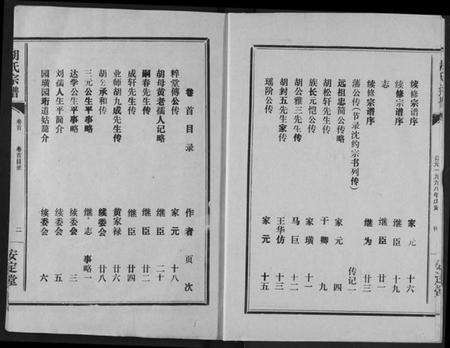 续修宗谱序 家元 十六
续修宗谱序 继臣 十九
志
续修宗谱序 继为
蒲公传(节录沈约宋书列传) 传记一
远祖忠简公传略 家元 四
胡松轩先生传 于卿 九
族长元恺公传 家璜 十一
胡公雅三先生传 马巨 十二
胡封五先生家传 王华仿 十三
瑶阶公传 家元 十五
卷首目录 作者 页次
梓堂傅公传 家元 十八
胡母黄老孺人记略 继臣 二十
嗣春先生传 继臣 廿二
成轩先生传 继臣 廿四
业师胡九成先生传 黄家禄 廿六
胡 承和传 续委会 廿八
三元公生平事略 继志 事略一
达季公生平事略 续委会 三
刘孺人生平简介 续委会 五
园璜园珩道姑简介 续委会 六
胡氏宗谱 卷首 卷首目录 二 安定堂